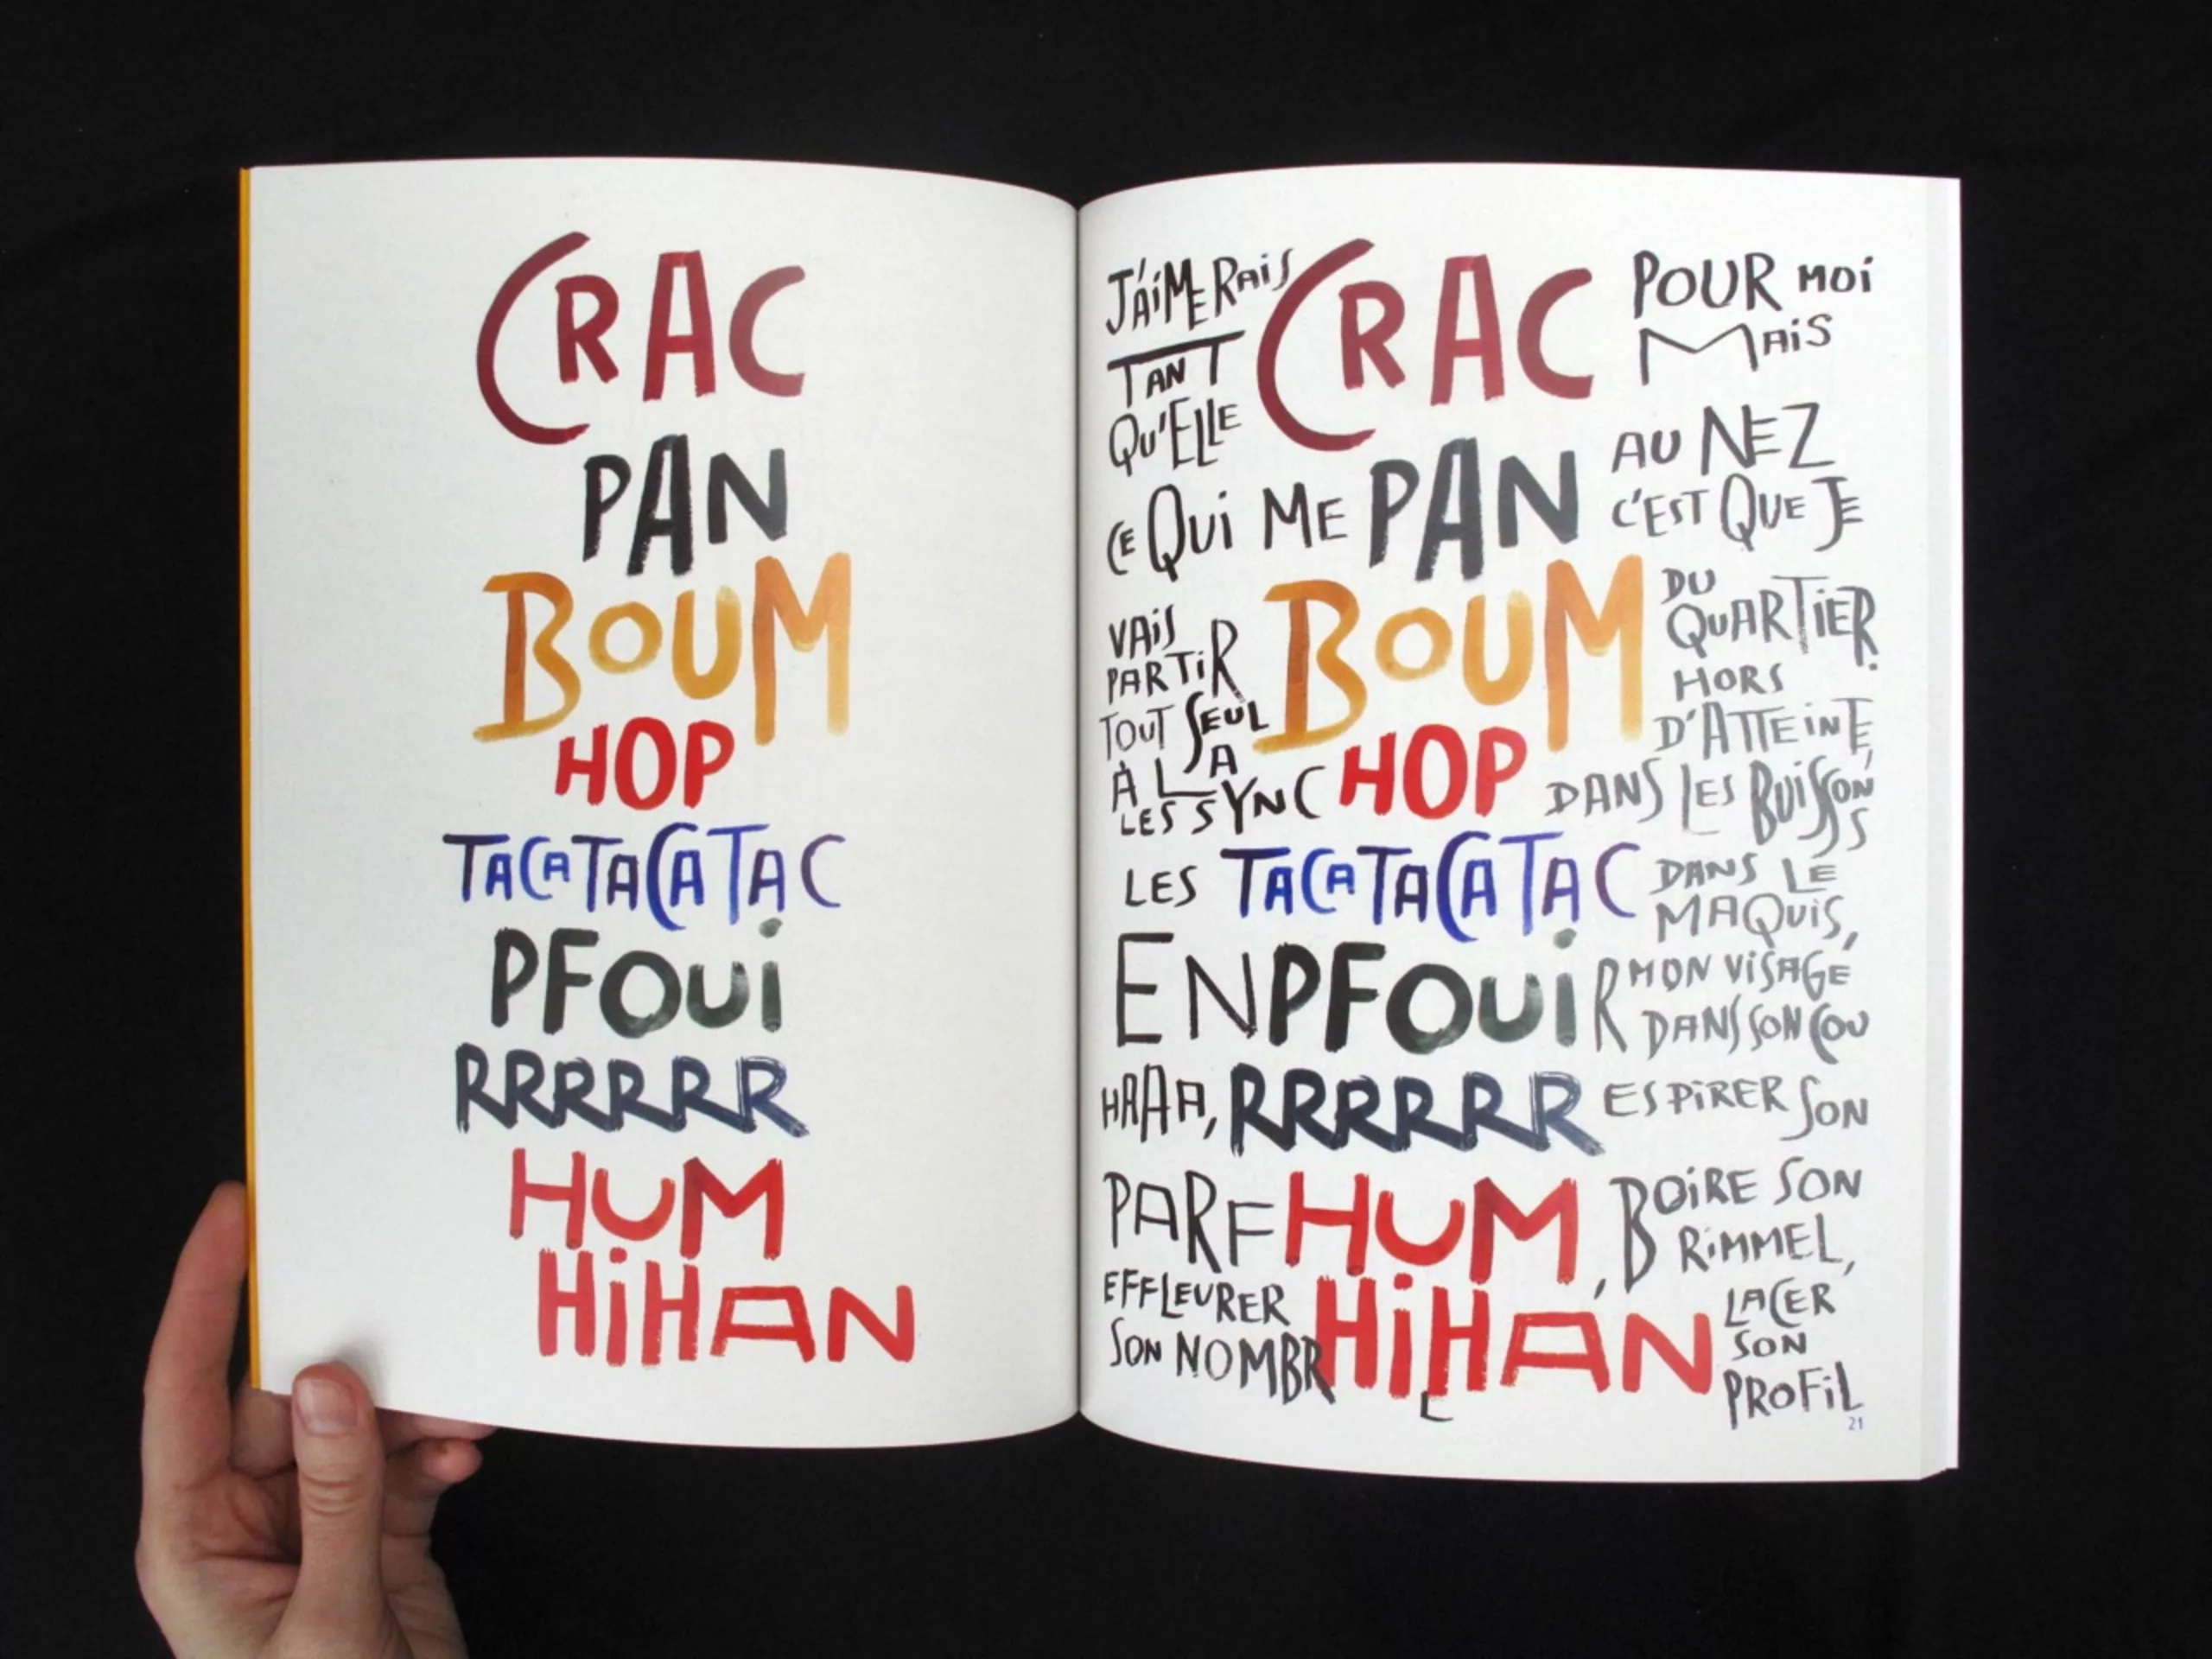 CRAC
PAN
BOUM
HOP
TACATACATAC
PFOUi
RRRRRR
HUM
HiHAN
J'AiMERAiS CRAC POUR MOi
TANT MAiS
QU'ELLE AU NEZ
CE QUi ME PAN C'EST QUE JE
VAiS BOUM DU
PARTiR QUARTiER.
TOUT SEUL HORS
À LA D'ATTEiNTE,
LES SYNC HOP DANS LES BUiSSONS
LES TACATACATAC DANS LE
MAQUiS,
ENPFOUiR MON ViSAGE
DANS SON COU
HAAA, RRRRRR ESPiRER SON
PARFHUM, BOiRE SON
RiMMEL,
EFFLEURER LACER
SON NOMBRHiLHAN SON
PROFiL
21